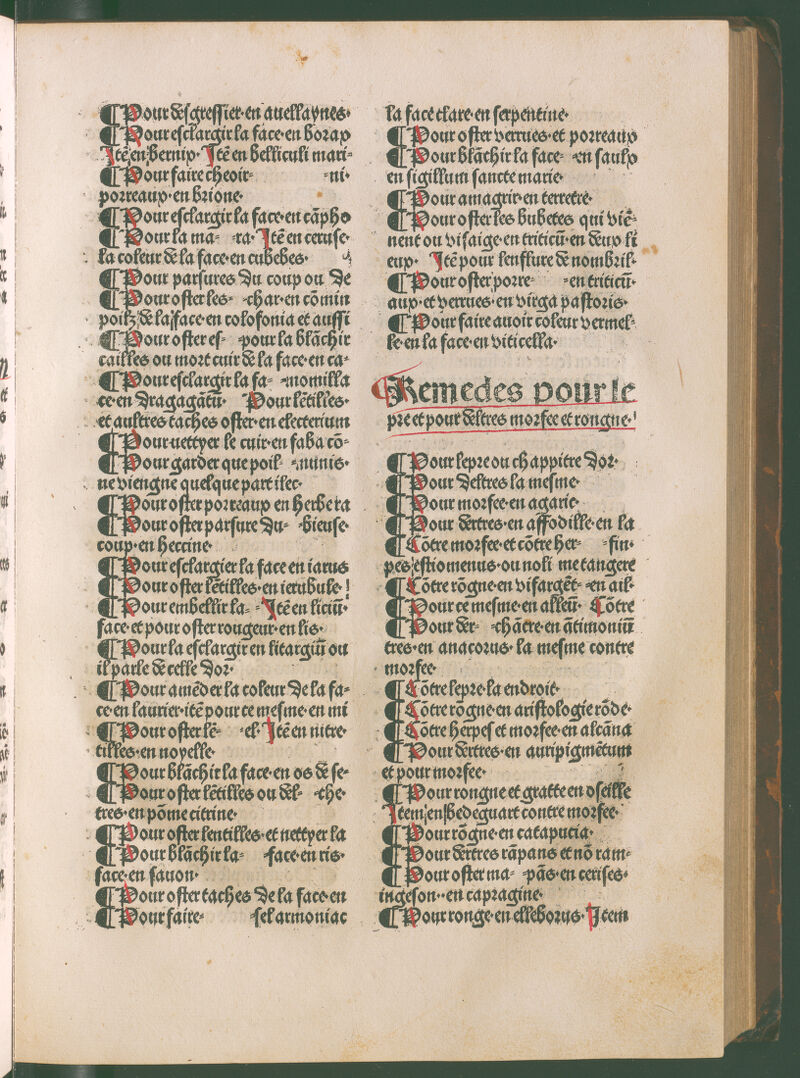 ¶ Pour desgressier·en auellaynes·
¶ Pour esclargir la face·en borax
Itē en bernix· Itē en bellliculi mari-
¶ Pour faire cheoir- -ni·
porreaux·en brione·
¶ Pour esclargir la face·en cāpho
¶ Pour la ma- -ra· Itē en ceruse·
la coleur de la face·en cubebes·
¶ Pour parsures du coup ou de
¶ Pour oster les- -char·en cōmin
poilz de la face·en colofonia et aussi
¶ Pour oster es- -pour la blāchir
cailles ou mort cuir de la face·en ca-
¶ Pour esclargir la fa- -momilla
ce·en dragagātū· ¶ Pour lētilles·
et aultres taches oster·en electerium
¶ Pour nettyer le cuir·en faba cō-
¶ Pour garder que poil -munis·
ne viengne quelque part ilec·
¶ Pour oster porreaux en herbe ra
¶ Pour oster parsure du- -bieuse·
coup·en heccine·
¶ Pour esclargier la face en iarus
¶ Pour oster lētilles·en ierubule·
¶ Pour embellir la- -Itē en liciū·
face·et pour oster rougeur·en lis·
¶ Pour la esclargir en litargiū ou
il parle de celle dor·
¶ Pour amēder la coleur de la fa-
ce·en laurier·itē pour ce mesme·en mi
¶ Pour oster lē- -el· Itē en nitre·
tilles·en noyelle·
¶ Pour blāchir la face·en os de se-
¶ Pour oster lētilles ou del- -che·
tres·en pōme citrine·
¶ Pour oster lentilles·et nettyer la
¶ Pour blāchir la- -face·en ris·
face·en sauon·
¶ Pour oster taches de la face·en
¶ Pour faire- -sel armoniac
la face clare·en serpentine·
¶ Pour oster verrues·et porreaux
¶ Pour blāchir la face- -en saulx
en sigillum sancte marie·
¶ Pour amagrir·en terretre·
¶ Pour oster les bubetes qui viē-
nent ou visaige·en triticū·en deux li
eux· Itē pour lenflure de nombril·
¶ Pour oster porre- -en triticū·
aux·et verrues·en virga pastoris·
¶ Pour faire auoir coleur vermel-
le·en la face·en viticella·
¶ Remedes pour le
pre et pour deltres morfee et rongne·
¶ Pour lepre ou chappitre dor·
¶ Pour deltres la mesme·
¶ Pour morfee·en agarie·
¶ Pour dertres·en affodille·en la
¶ Cōtre morfee·et cōtre her- -fin·
pes estiomenus·ou noli me tangere
¶ Cōtre rōgne·en vifargēt- -en ail·
¶ Pour ce mesme·en alleū· Cōtre
¶ Pour der- -chācre·en ātimoniū
tres·en anacorus· la mesme contre
morfee·
¶ Cōtre lepre·la endroit·
¶ Cōtre rōgne·en aristologie rōde·
¶ Cōtre herpes et morfee·en alcāna
¶ Pour dertres·en auripigmētum
et pour morfee·
¶ Pour rongne et gratte en oseille
Item en bedeguart contre morfee·
¶ Pour rōgne·en cataputia·
¶ Pour dertres rāpans et nō ram-
¶ Pour oster ma- -pās·en cerises·
ingeson··en capragine·
¶ Pour ronge·en elleborus· Item